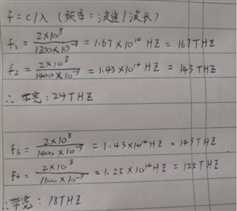 f = c/λ (频率 = 波速/波长)
f₁ = 2×10⁸ / 1200×10⁻⁹ = 1.67×10¹⁴ HZ = 167THZ
f₂ = 2×10⁸ / 1400×10⁻⁹ = 1.43×10¹⁴ HZ = 143THZ
∴ 带宽: 24THZ
f₃ = 2×10⁸ / 1400×10⁻⁹ = 1.43×10¹⁴ HZ = 143THZ
f₄ = 2×10⁸ / 1600×10⁻⁹ = 1.25×10¹⁴ HZ = 125THZ
∴ 带宽: 18THZ